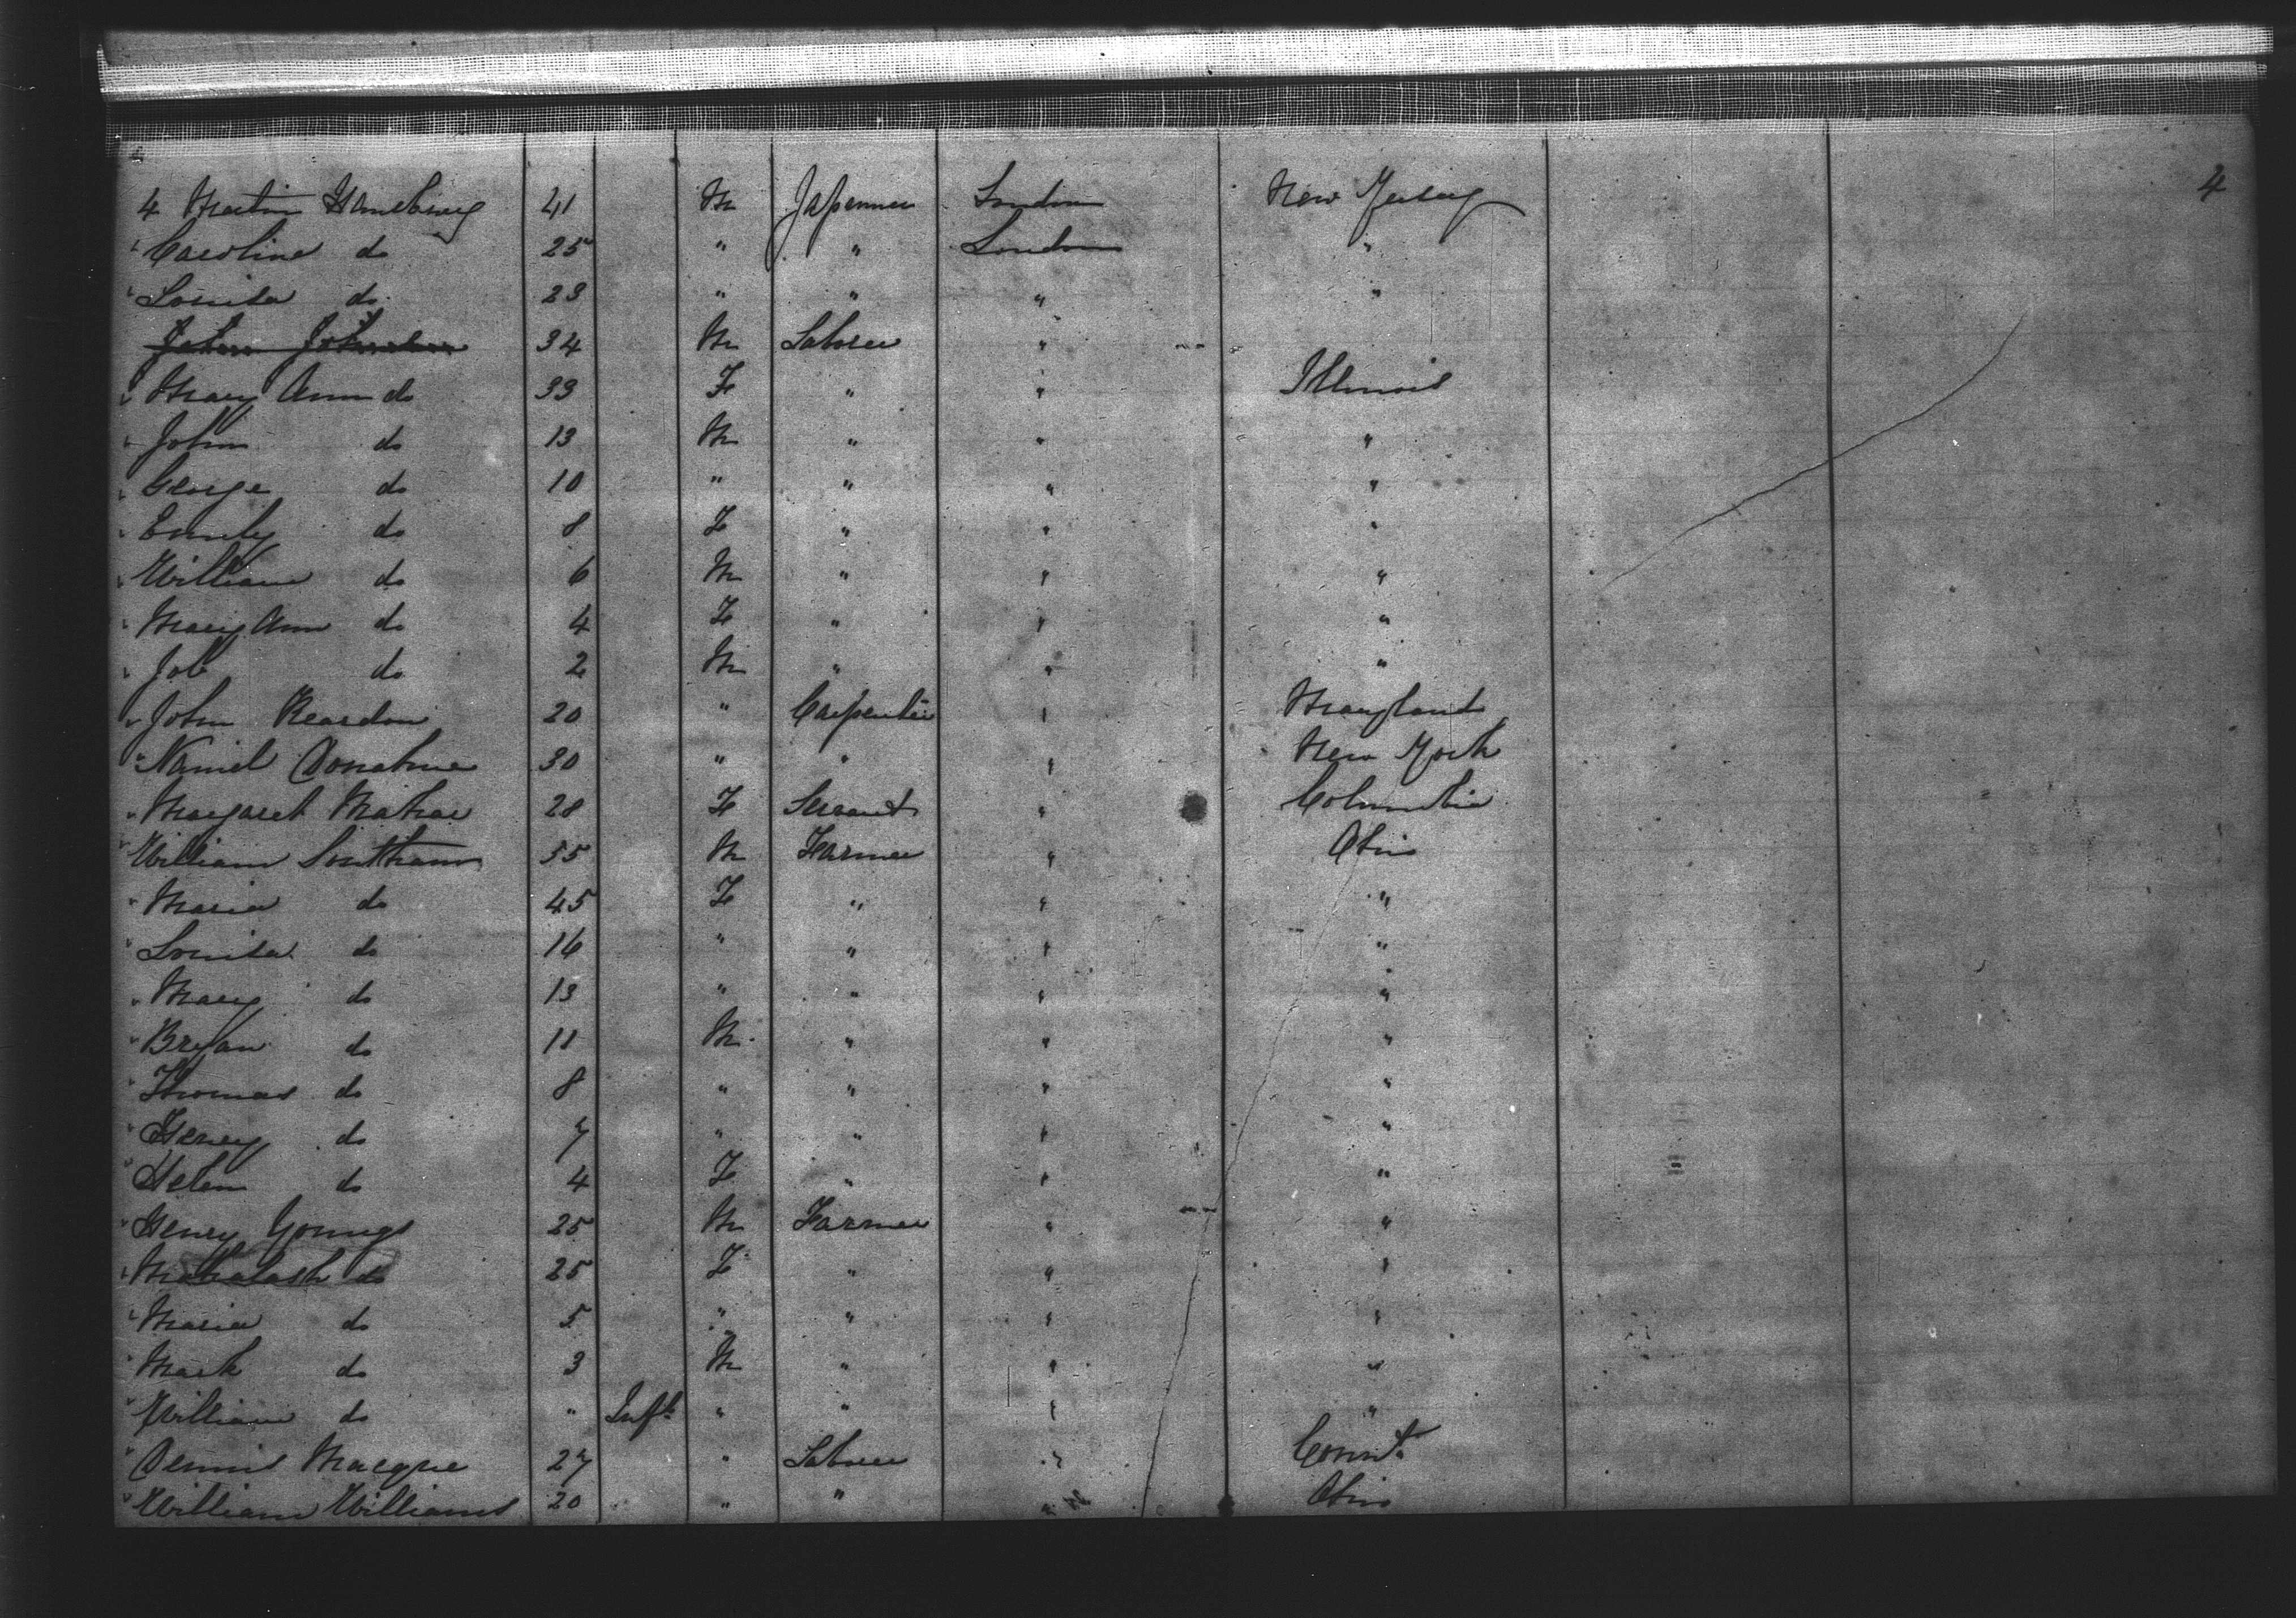 4
4 Martin 41 M Japanner London New Jersey
" Caroline do 25 " " London "
" Louisa do 23 " " " "
John Johnston 34 M Laborer "
" Mary Ann do 33 F " " Illinois
" John do 13 M " " "
" George do 10 " " " "
" Emily do 8 F " " "
" William do 6 M " " "
" Mary Ann do 4 F " " "
" Job do 2 M " " "
" John Reardon 20 " Carpenter " Maryland
" Daniel Donahue 30 " " " New York
" Margaret Mahar 28 F Servant " Columbia
" William Southam 55 M Farmer " Ohio
" Maria do 45 F " " "
" Louisa do 16 " " " "
" Mary do 13 " " " "
" Bryan do 11 M " " "
" Thomas do 8 " " " "
" Henry do 7 " " " "
" Helen do 4 F " " "
" Henry Youngs 25 M Farmer " "
" do 25 F " " "
" Maria do 5 " " " "
" Mark do 3 M " " "
" William do " Inft " " " "
" Dennis 27 " Laborer " Connt.
" William Williams 20 " " " Ohio